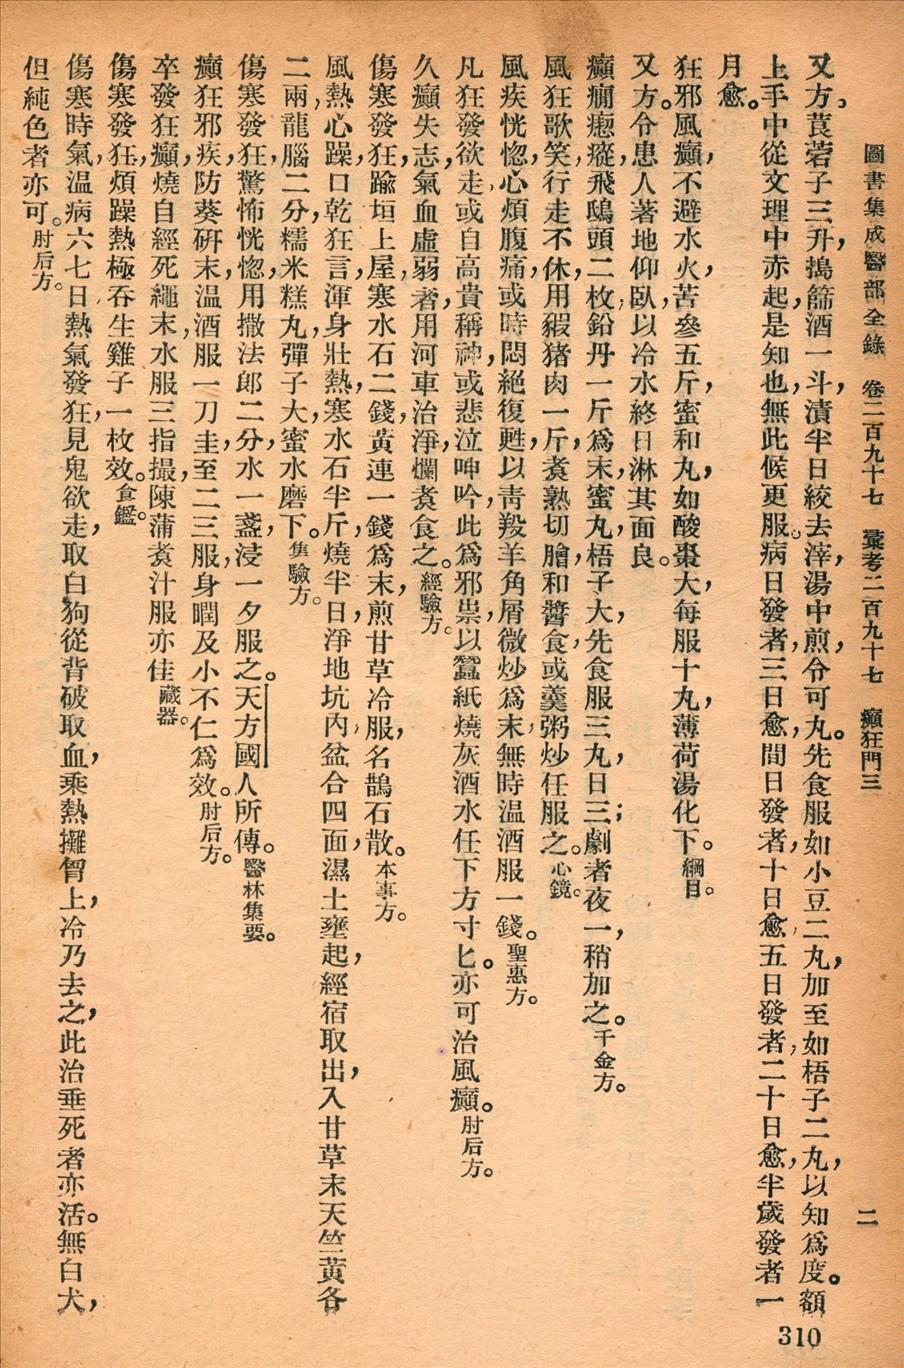 圖書集成醫部全錄　卷二百九十七　彙考二百九十七　癲狂門三　二
又方。莨菪子三升，搗篩酒一斗漬半日絞去滓，湯中煎，令可丸。先食服如小豆二丸，加至如梧子二丸，以知爲度。額
上手中從文理中赤起，是知也，無此候更服。病日發者，三日愈，間日發者，十日愈，五日發者，二十日愈，半歲發者一
月愈。
狂邪風癲，不避水火，苦參五斤，蜜和丸，如酸棗大，每服十丸，薄荷湯化下。綱目。
又方。令患人著地仰臥，以冷水終日淋其面良。
癲癇瘛瘲，飛鴟頭二枚，鉛丹一斤，爲末，蜜丸，梧子大，先食服三丸，日三；劇者夜一，稍加之。千金方。
風狂歌笑，行走不休，用豭猪肉一斤，煮熟切膾，和醬食，或羹粥炒任服之。心鏡。
風疾恍惚，心煩腹痛，或時悶絕復甦，以靑羖羊角屑微炒爲末，無時温酒服一錢。聖惠方。
凡狂發欲走，或自高貴稱神，或悲泣呻吟，此爲邪祟，以蠶紙燒灰酒水任下方寸匕。亦可治風癲。肘后方。
久癲失志，氣血虛弱者，用河車治淨，爛煮食之。經驗方。
傷寒發狂，踰垣上屋，寒水石二錢，黃連一錢，爲末，煎甘草冷服，名鵲石散。本事方。
風熱心躁，口乾狂言，渾身壯熱，寒水石半斤，燒半日，淨地坑內，盆合四面，濕土壅起，經宿取出，入甘草末天竺黃各
二兩，龍腦二分，糯米糕丸，彈子大，蜜水磨下。集驗方。
傷寒發狂，驚怖恍惚，用撒法郎二分，水一盞，浸一夕服之。天方國人所傳。醫林集要。
癲狂邪疾，防葵硏末，温酒服一刀圭，至二三服，身瞤及小不仁爲效。肘后方。
卒發狂癲，燒自經死繩末，水服三指撮，陳蒲煮汁服亦佳。藏器。
傷寒發狂，煩躁熱極，吞生雞子一枚效。食鑑。
傷寒時氣，温病六七日，熱氣發狂，見鬼欲走，取白狗從背破取血，乘熱攤胷上，冷乃去之，此治垂死者亦活。無白犬，
但純色者亦可。肘后方。
310